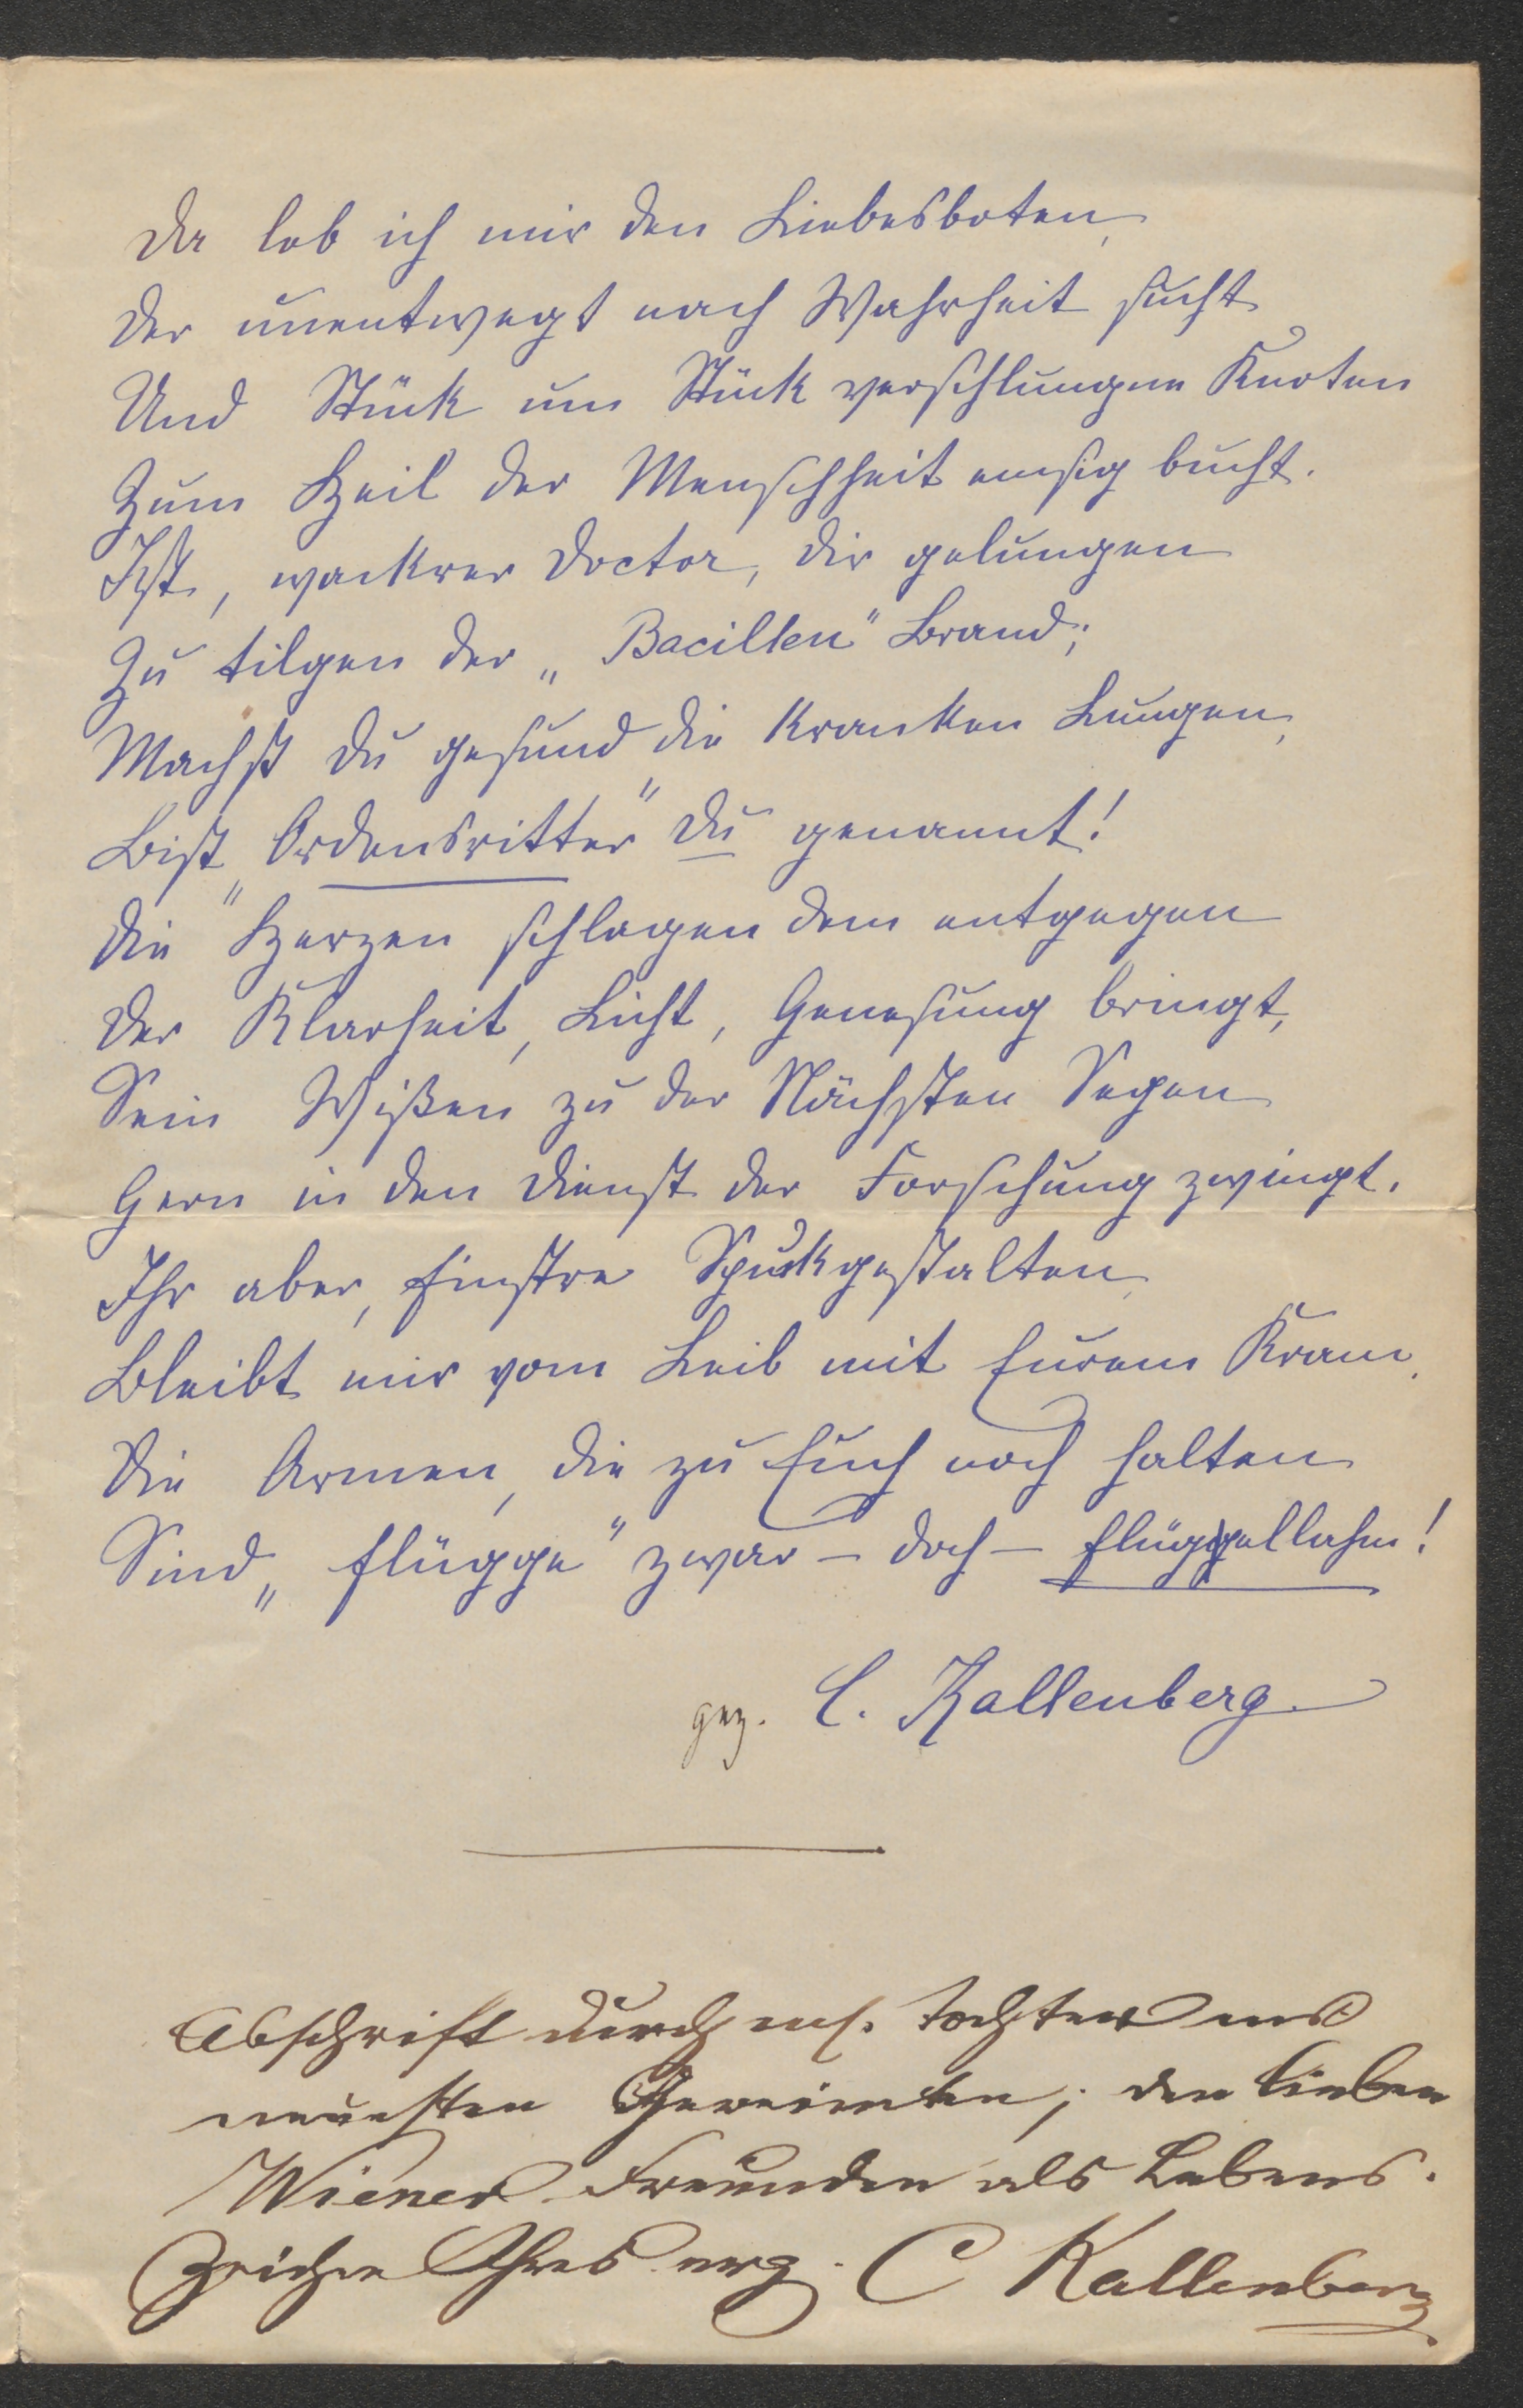 Da lob ich mir den Liebesboten,
Der unentwegt nach Wahrheit sucht
Und Stück um Stück verschlungne Knoten
Zum Heil der Menschheit emsig bucht.
Ists, wackrer Doctor, dir gelungen
Zu tilgen der „Bacillen" Brand;
Machst du gesund die kranken Lungen,
Bist „Ordensritter" du genannt!
Die Herzen schlagen dem entgegen
Der Klarheit, Licht, Genesung bringt,
Sein Wißen zu der Nächsten Segen
Gern in den Dienst der Forschung zwingt.
Ihr aber, finstre Spukgestalten,
Bleibt mir vom Leib mit Eurem Kram.
Die Armen, die zu Euch noch halten
Sind „flügge" zwar – doch – flügellahm!
gez. C. Kallenberg
Abschrift durch m. Tochter uns
neuesten Gereimten; den lieben
Wiener Freunden als Lebens-
Zeichen Ihres erg. C Kallenberg